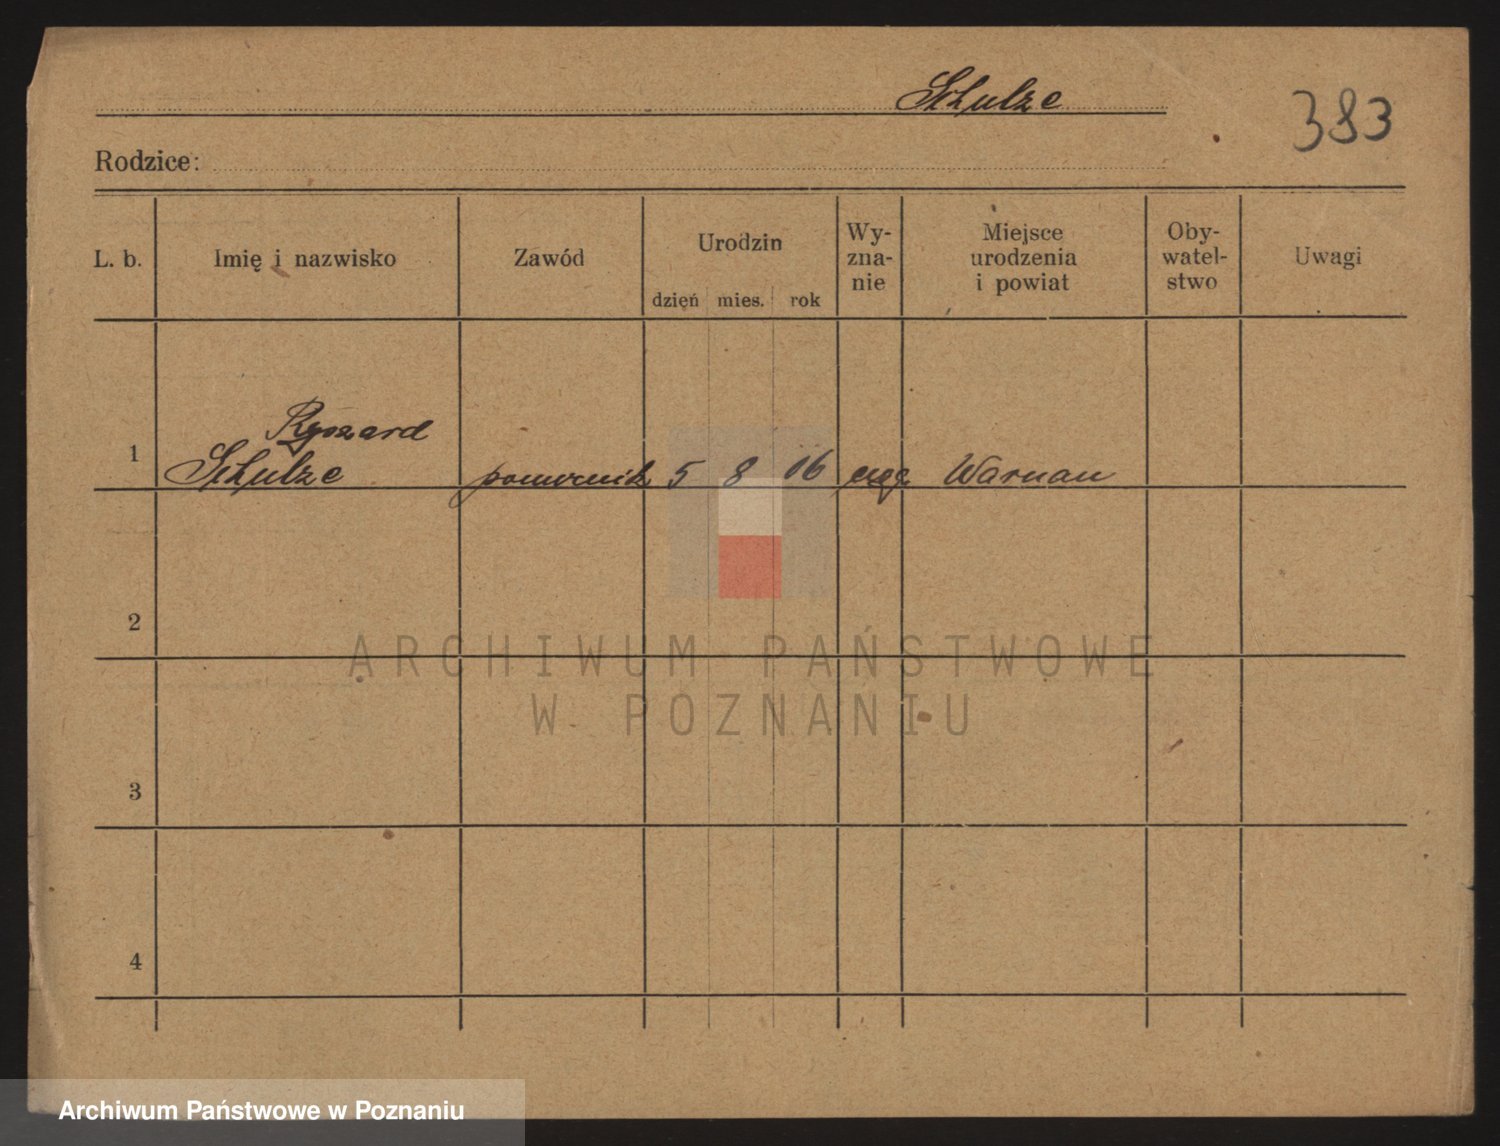 Schulze
383
Rodzice:
L. b. Imię i nazwisko Zawód Urodzin dzień mies. rok Wy-
zna-
nie Miejsce
urodzenia
i powiat Oby-
watel-
stwo Uwagi
Ryszard
1 Schulze pomocnik 5 8 06 ewg Warnau
2
3
4
ARCHIWUM PAŃSTWOWE
W POZNANIU
Archiwum Państwowe w Poznaniu